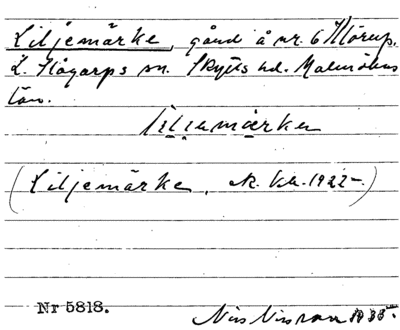 Liljemärke, gård å nr. 6 Hörup,
L. Slågarps sn. Skytts hd. Malmöhus
län.
liljemärker
(Liljemärke, A. Kbl. 1922-.)
Nr 5818.
Nils Nilsson 1935.